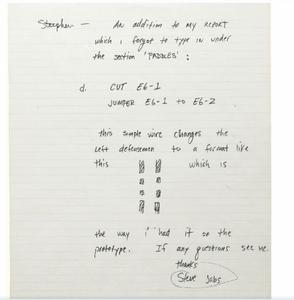 Stephen — An addition to my REPORT
which i forgot to type in under
the section 'PADDLES':
d. CUT E6-1
JUMPER E6-1 to E6-2
this simple wire changes the
left defensemen to a format like
this which is
the way i had it on the
prototype. If any questions see me.
thanks
Steve Jobs